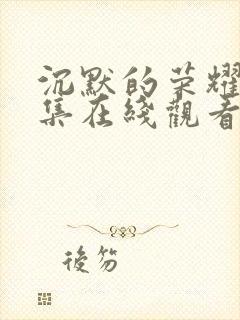 沉默的荣耀
集在綫觀看
後笏